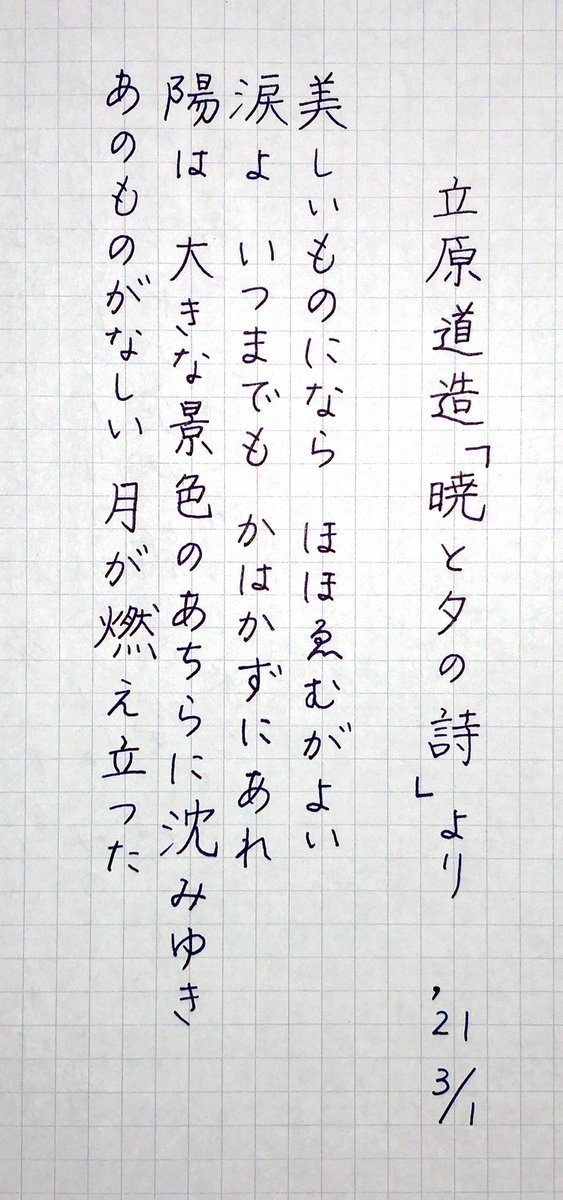 立原道造「暁と夕の詩」より '21 3/1
美しいものになら ほほゑむがよい
涙よ いつまでも かはかずにあれ
陽は 大きな景色のあちらに沈みゆき
あのものがなしい 月が燃え立つた